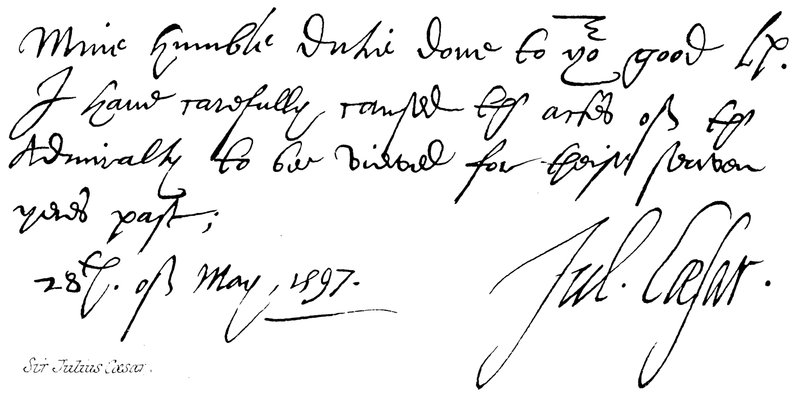 Mine humble dutie done to yo good Lp.
I have carefully caused the actes of the
Admiralty to bee viewed for theise seaven
yeres past;
28th. of May, 1597.
Jul. Cæsar.
Sir Julius Cæsar.